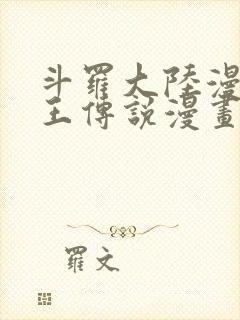 斗羅大陸漫
王傳說漫畫
羅文